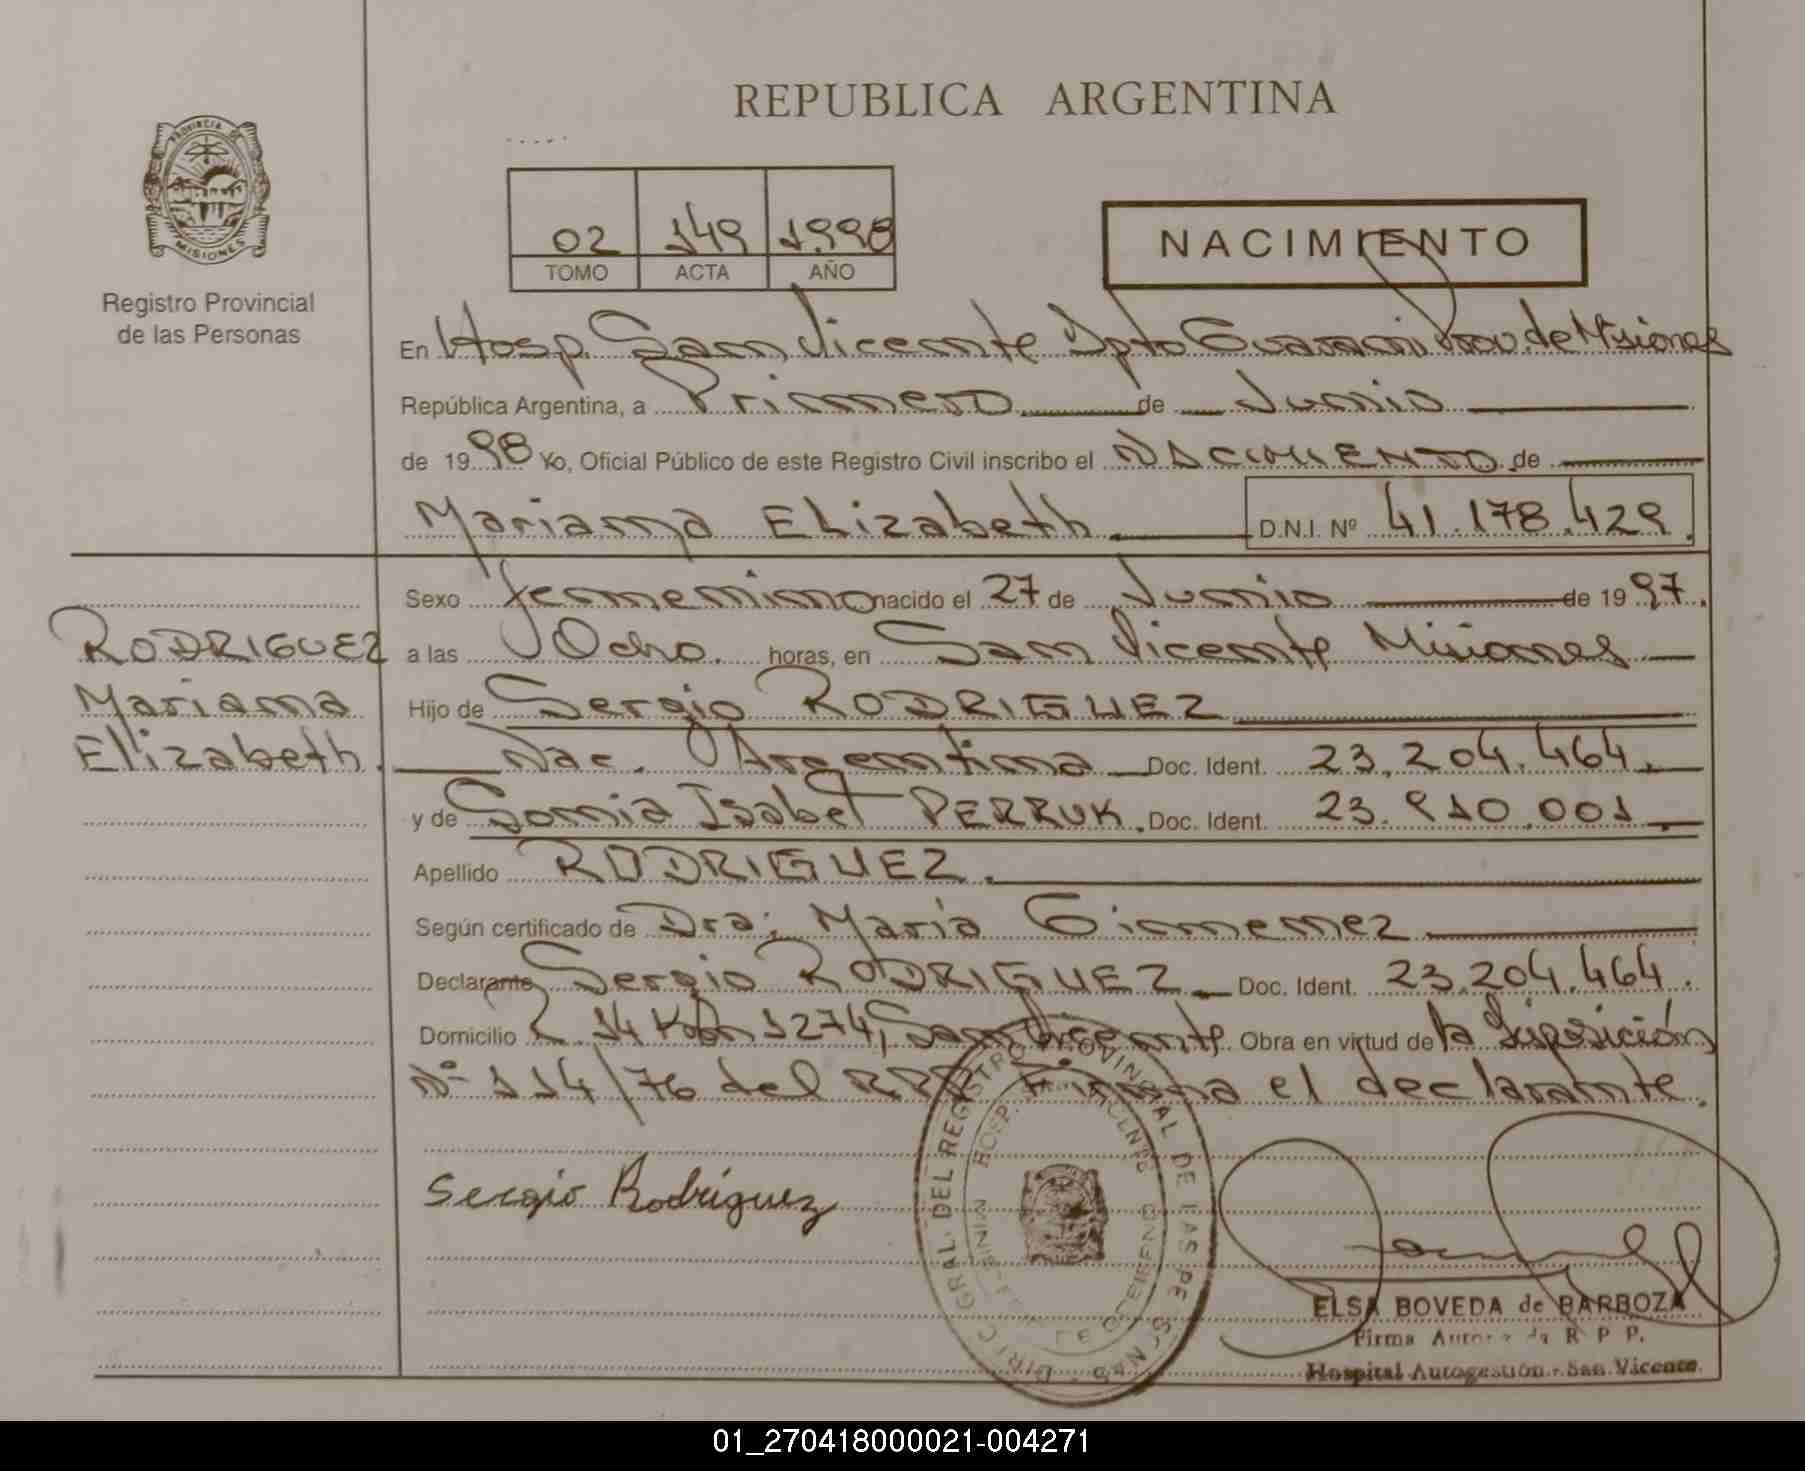 REPUBLICA ARGENTINA
PROVINCIA DE MISIONES
Registro Provincial
de las Personas
02 149 1998
TOMO ACTA AÑO
NACIMIENTO
En Hosp. San Vicente Dpto Guarani Prov. de Misiones
República Argentina, a Primero de Junio
de 1998 Yo, Oficial Público de este Registro Civil inscribo el NACIMIENTO de
Mariana Elizabeth D.N.I. Nº 41.178.429.
Sexo femenino nacido el 27 de Junio de 1997.
a las Ocho. horas, en San Vicente Misiones
Hijo de Sergio RODRIGUEZ
Nac. Argentina Doc. Ident. 23.204.464.
y de Sonia Isabel PERRUK. Doc. Ident. 23.910.001.
Apellido RODRIGUEZ.
Según certificado de Dra: María Gimenez
Declarante Sergio RODRIGUEZ Doc. Ident. 23.204.464.
Domicilio 14 1274, San Vicente Obra en virtud de la Disposición
Nº 114/76 del RPP Firma el declarante.
RODRIGUEZ
Mariana
Elizabeth.
Sergio Rodríguez
DIREC. GRAL. DEL REGISTRO PROVINCIAL DE LAS PERSONAS
HOSP. SAN VICENTE
ELSA BOVEDA de BARBOZA
Firma R P P.
Hospital Autogestión - San Vicente
01_270418000021-004271